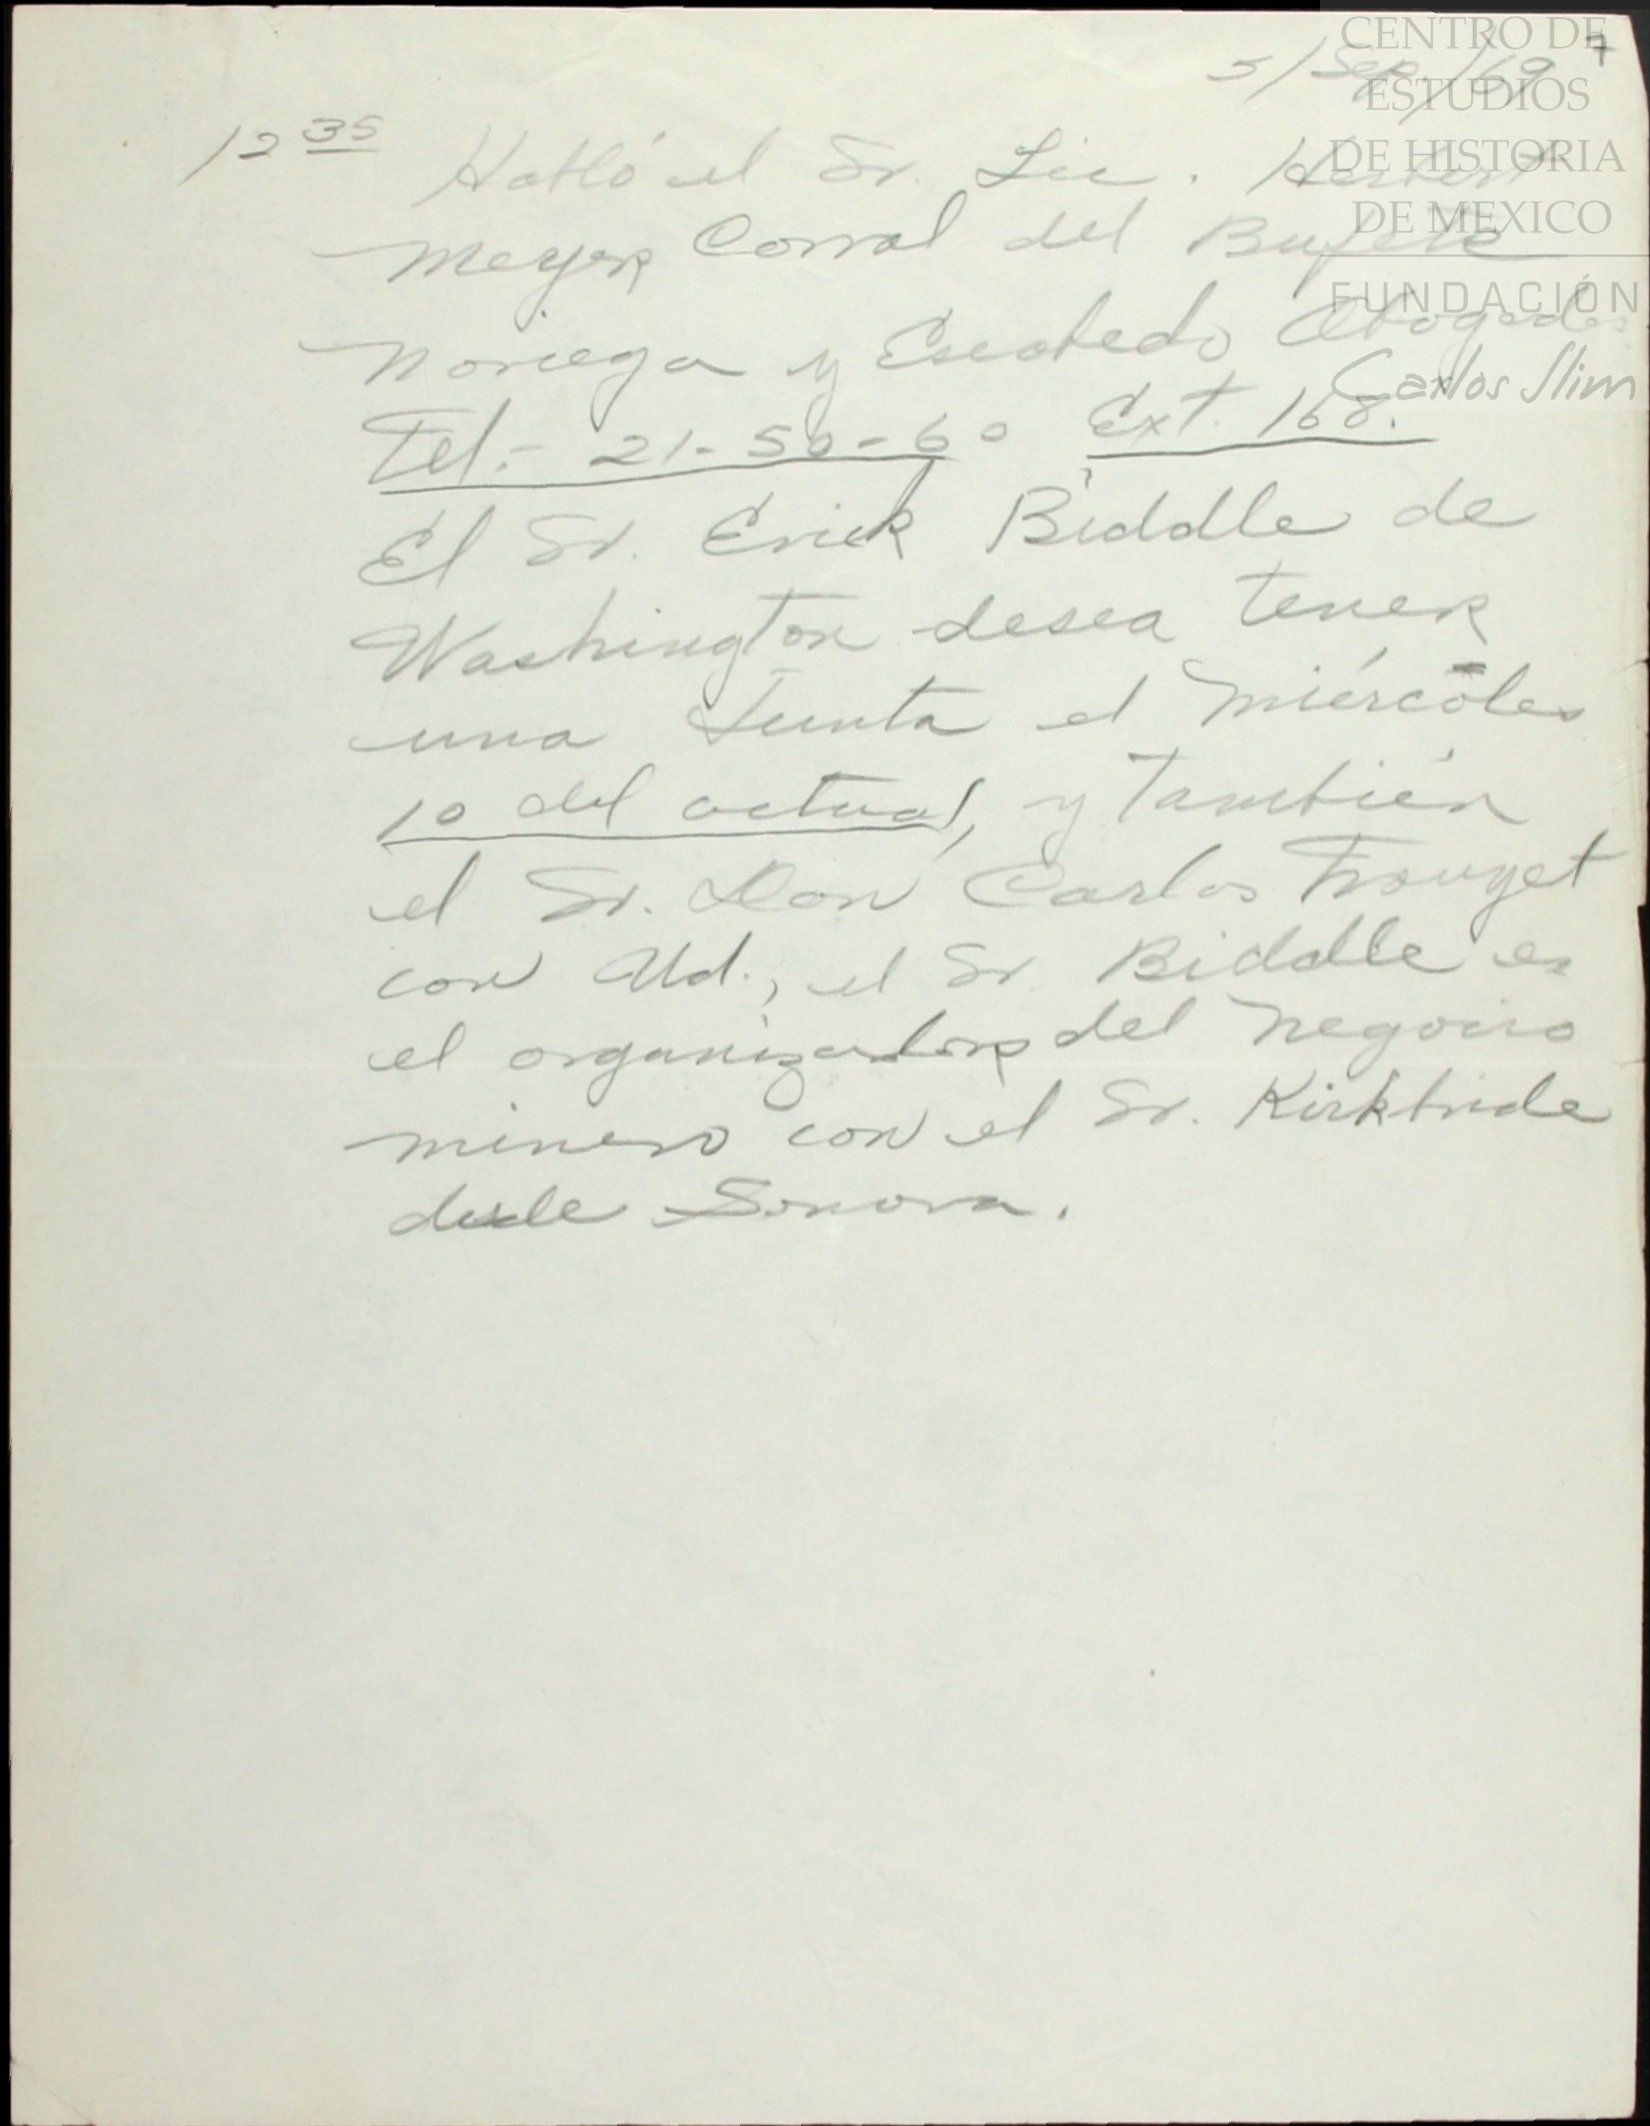 CENTRO DE
ESTUDIOS
DE HISTORIA
DE MEXICO
FUNDACIÓN
Carlos Slim
7
5/Sep./69
12 35 Habló el Sr. Lic. Herbert
Meyer Corral del Bufete
Noriega y Escobedo Abogados
Tel.- 21-50-60 Ext. 168.
El Sr. Erick Biddle de
Washington desea tener
una Junta el miércoles
10 del actual, y también
el Sr. Don Carlos Trouyet
con Ud., el Sr. Biddle es
el organizador del negocio
minero con el Sr. Kirkbride
desde Sonora.